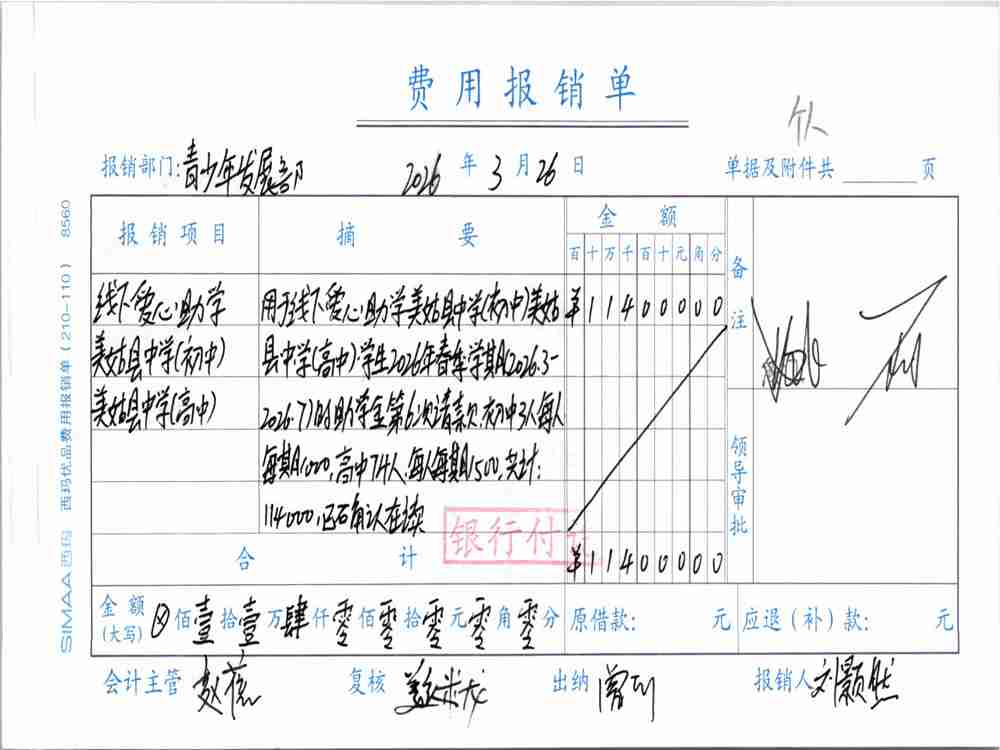 费用报销单
报销部门:青少年发展部 2026年3月26日 单据及附件共 页
报销项目 摘要 金额 备注
百十万千百十元角分
线下爱心助学 用于线下爱心助学美姑县中学(初中)美姑 ¥11400000
美姑县中学(初中) 县中学(高中)学生2026年春季学期(2026.3-
美姑县中学(高中) 2026.7)的助学金第6次请款,初中3人每人
每期1000,高中74人,每人每期1500,共计:
114000,已确认在读
领导审批
银行付
合计 ¥11400000
金额(大写) ⊗佰壹拾壹万肆仟零佰零拾零元零角零分 原借款: 元 应退(补)款: 元
会计主管 复核 出纳 报销人 刘颢然
SIMAA西玛 西玛优品费用报销单(210-110) 8560